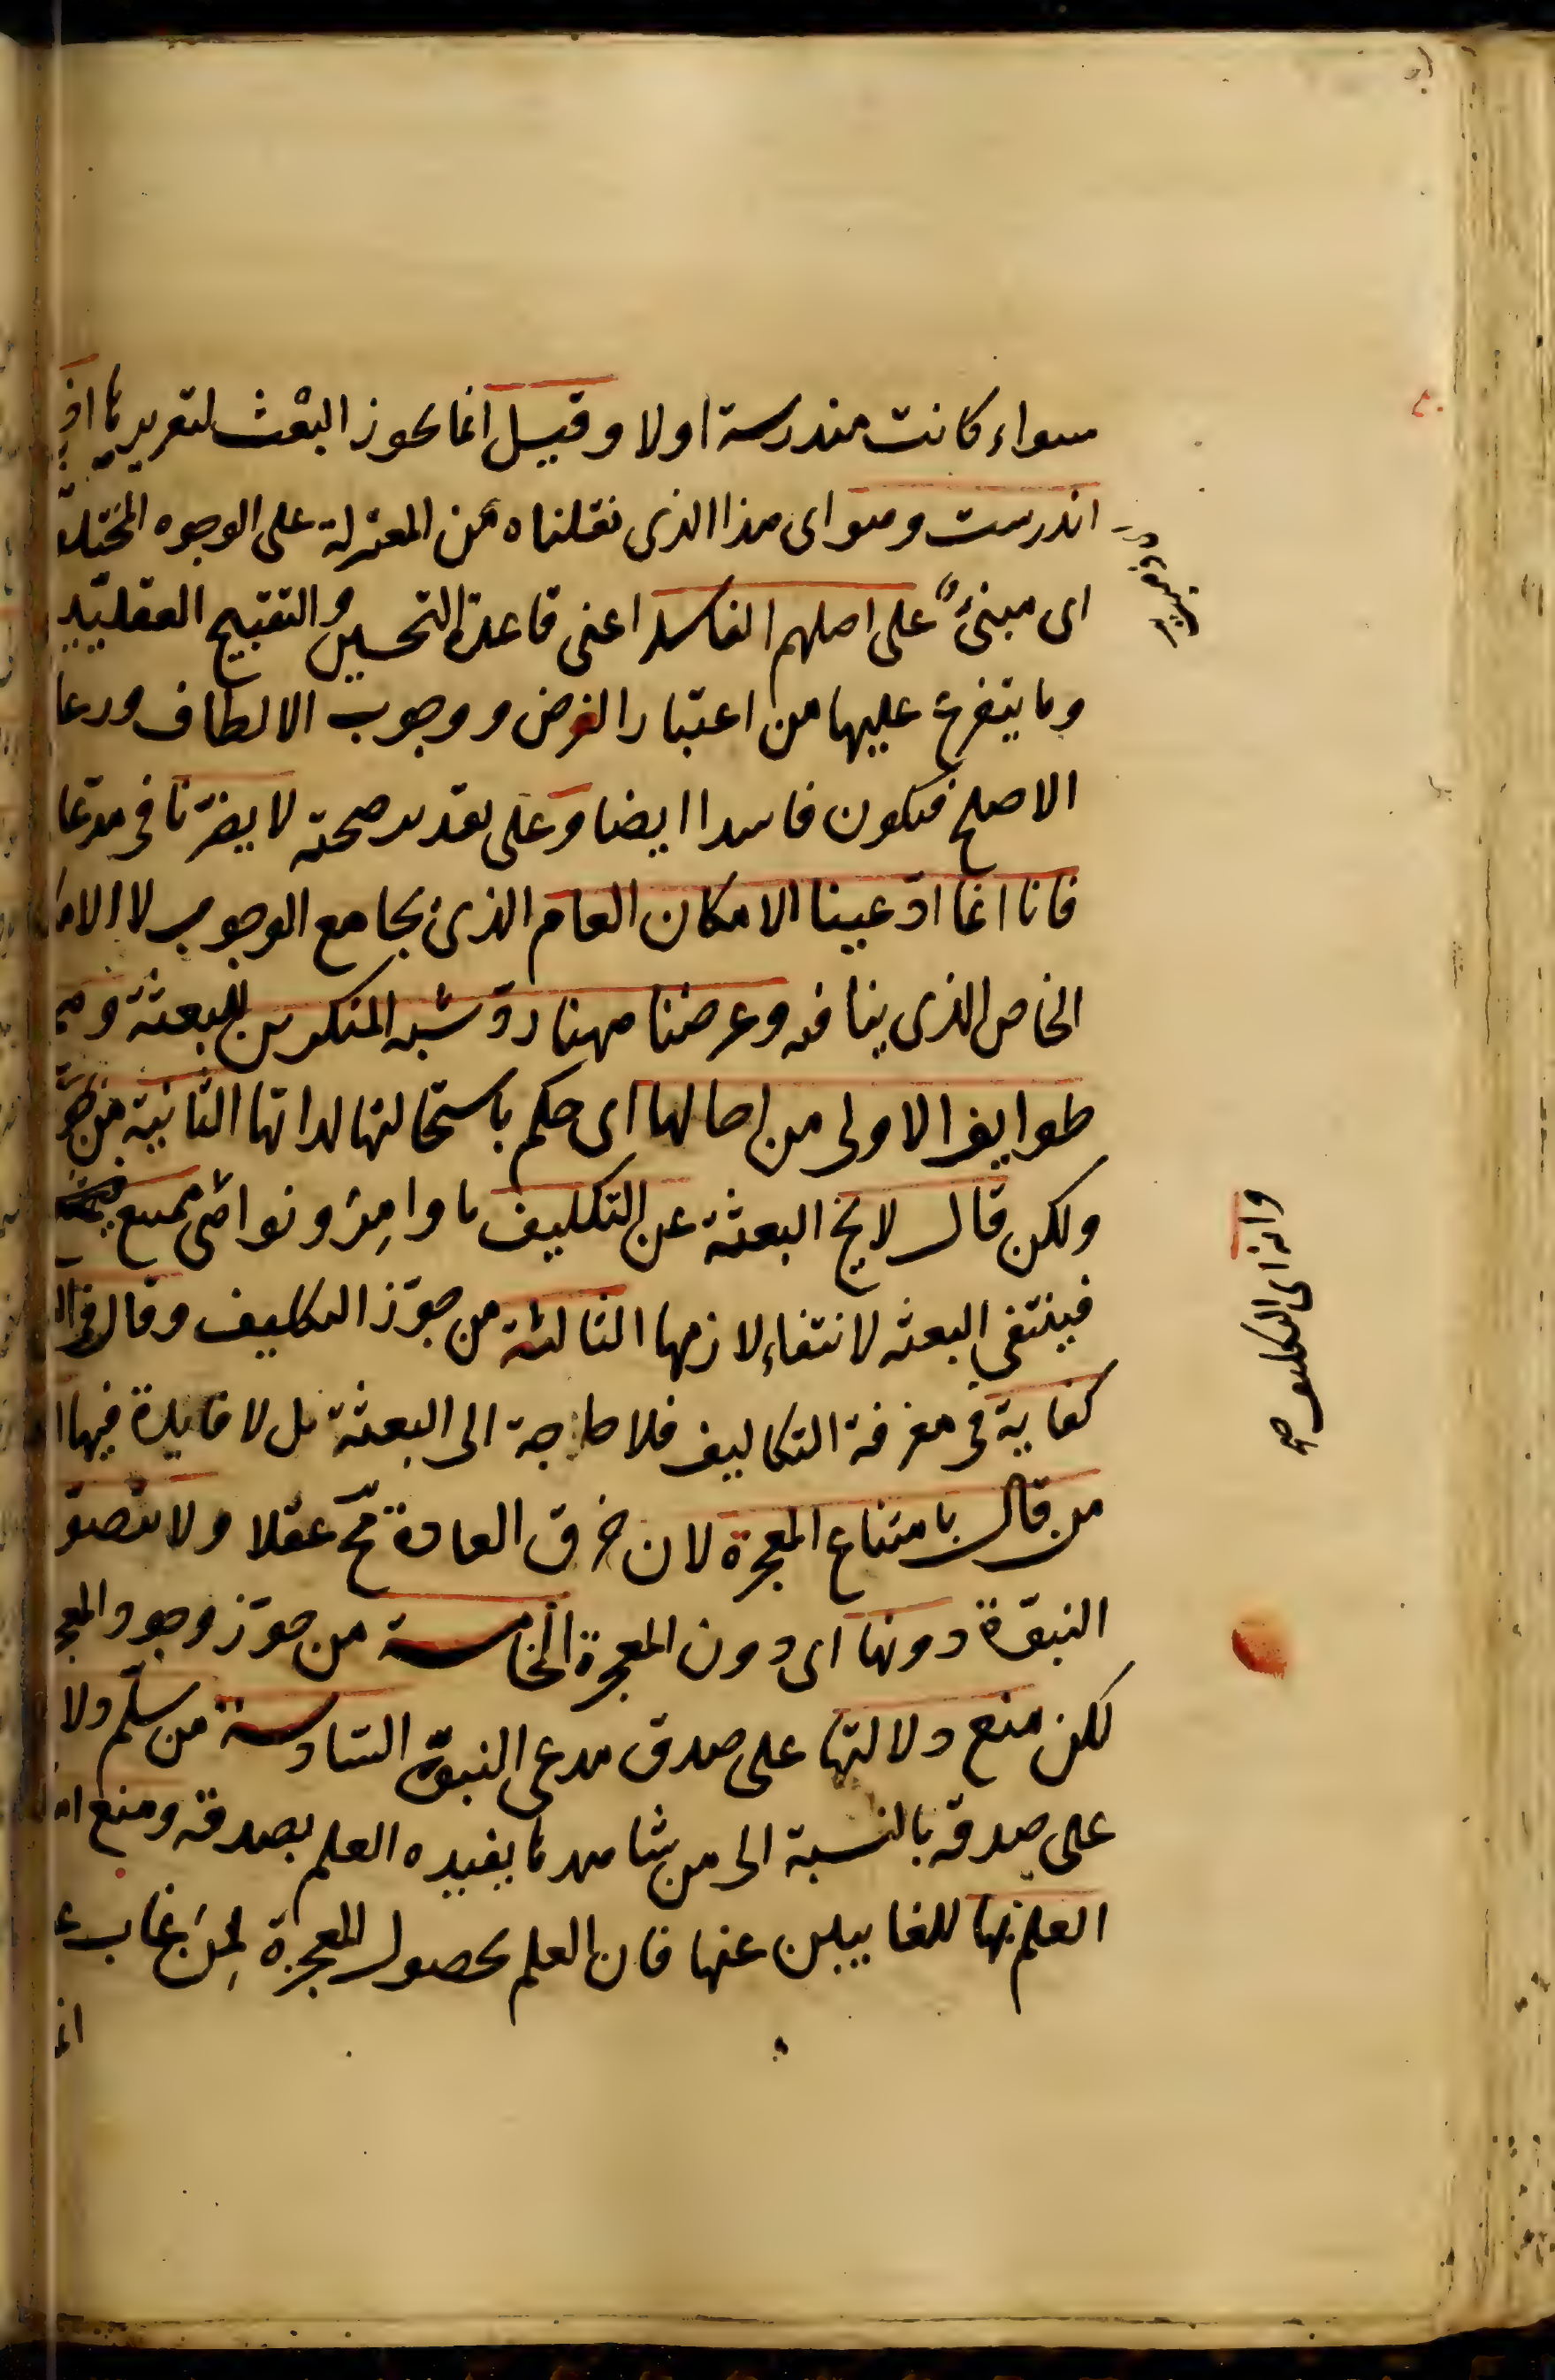 سواء كانت مندرسة اولا وقيل انما يجوز البعث لتقرير ما اذ
اندرست وهو اى هذا الذى نقلناه من المعتزلة على الوجوه المختلفة
اى مبنىّ على اصلهم الفاسد اعنى قاعدة التحسين والتقبيح العقليّة
وما يتفرع عليها من اعتبار الغرض ووجوب الالطاف ورعا
الاصلح فيكون فاسدا ايضا وعلى تقدير صحته لا يضرّنا فى مدّعا
فانا انما ادّعينا الامكان العام الذى يجامع الوجوب لا الامكا
الخاص الذى ينافيه وغرضنا ههنا ردّ شبه المنكرين للبعثة وهم
طوايف الاولى من احالها اى حكم باستحالتها لذاتها الثانية من جوّ
ولكن قال لا يخ البعثة عن التكليف باوامر ونواهى ممتنع
فينتفى البعثه لانتفاء لازمها الثالثة من جوّز التكليف وقال فى ال
كفاية فى معرفة التكاليف فلا حاجة الى البعثة بل لا فايدة فيها ا
من قال بامتناع المعجزة لان خرق العادة مح عقلا ولا يتصوّ
النبوّة دونها اى دون المعجزة الخامسة من جوّز وجود المعج
لكن منع دلالتها على صدق مدعى النبوّة السّادسة من سلّم دلا
على صدقه بالنسبة الى من شاهدها يفيده العلم بصدقه ومنع ا
العلم بها للغايبين عنها فان العلم بحصول المعجزة لمن غاب ع
انما
وانه اى التكليف صح